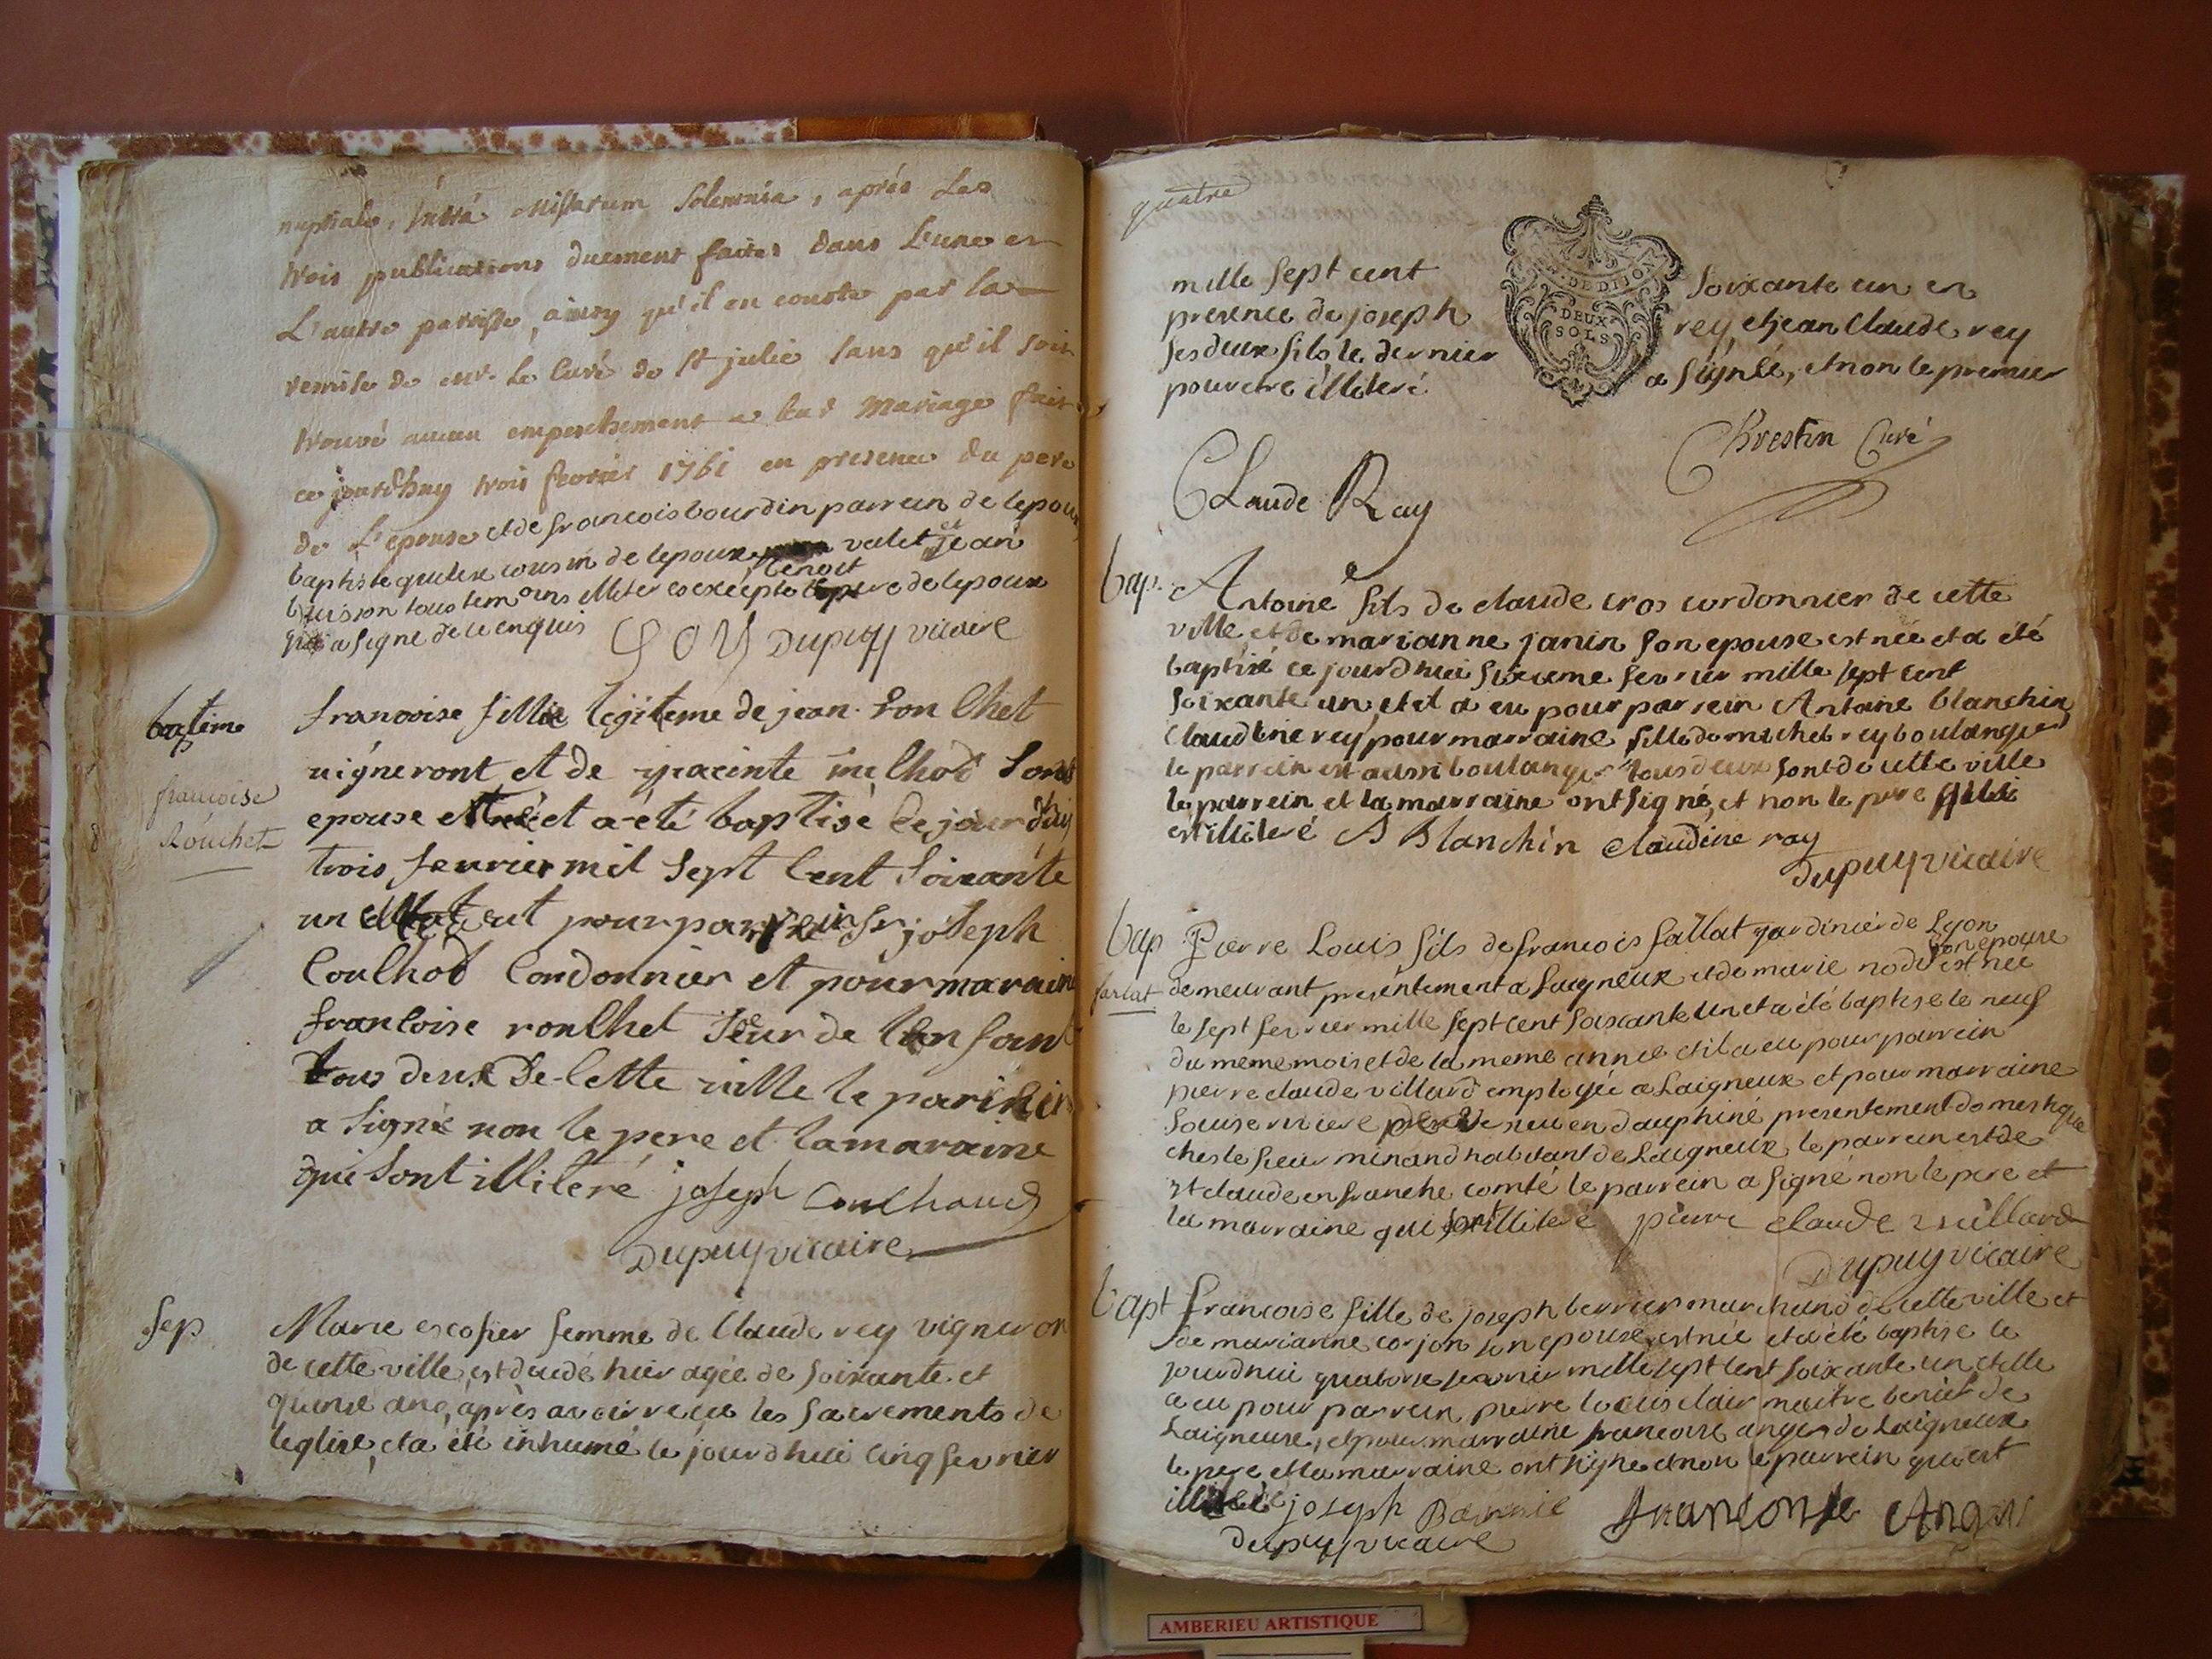 nuptiale, intrà missarum solemnia, après les
trois publications duement faites dans l'une et
L'autre parroisse, ainsy qu'il en conste par la
remise de mr. Le Curé de st julie sans qu'il soit
trouvé aucun empeschement a leur mariage fait
ce jourdhuy trois fevrier 1761 en presence du pere
de L'epouse et de francois bourdin parrein de lepoux
baptiste cousin de lepoux valet et jean
buisson tous temoins illiteres excepté benoit pere de lepoux
qui a signé de ce enquis GOY Dupuy vicaire
batême
francoise
Rouchet
francoise fille legiteme de jean ronChet
uigneront et de yiacinte milhod Son
epouse est née et a été baptisé Ce jour d'huy
trois feurier mil Sept Cent Soixante
un eut pour parrein Sr joseph
Coulhod Cordonnier et pour maraine
francoise ronChet Seur de lenfant
tous deux De Cette uille le parrein
a Signé non le pere et la maraine
qui Sont illiteré joseph Coulhaud
Dupuy vicaire
sep
Marie escofier femme de Claude rey vigneron
de cette ville, est decedé hier agée de soixante et
quinze ans, après avoir recu les sacrements de
leglise, et a été inhumé le jourdhui cinq fevrier
quatre
mille sept cent soixante un en
presence de joseph rey, et jean Claude rey
ses deux fils le dernier a signé, et non le premier
pour etre illiteré
G. DE DIJON
DEUX
SOLS
Chrestin Curé
CLaude Ray
bap.
Antoine fils de claude cros cordonnier de cette
ville et de marianne janin son epouse est née et a été
baptisé ce jourdhui sixieme fevrier mille sept cent
soixante un, et il a eu pour parrein Antoine blanchin
Claudine rey pour marraine, fille de michel rey boulanger
le parrein est aussi boulanger tous deux sont de cette ville
le parrein et la marraine ont signé, et non le pere
est illiteré A Blanchin claudine ray
Dupuy vicaire
bap
fallat
Pierre Louis fils de francois fallat jardinier de Lyon
demeurant presentement a Laigneux et de marie nodet son epouse est née
le sept fevrier mille sept cent soixante un et a été baptisé le neuf
du meme mois et de la meme année et il a eu pour parrein
pierre claude villard employée a Laigneux et pour marraine
Louise en dauphiné presentement domestique
ches le sieur minand habitant de Laigneux le parrein est de
st claude en franche comté le parrein a signé non le pere et
la marraine qui sont illiteré pierre claude villard
Dupuy vicaire
bapt
francoise fille de joseph berrier marchand de cette ville et
de marianne corjon son epouse, est née et a été baptisé le
jourdhui quatorze fevrier mille sept cent soixante un et elle
a eu pour parrein pierre louis clair maitre de
Laigneux, et pour marraine francoise anger de Laigneux
le pere et la marraine ont signé et non le parrein qui est
illiteré joseph Bairrie francoise Angar
dupuy vicaire
AMBERIEU ARTISTIQUE